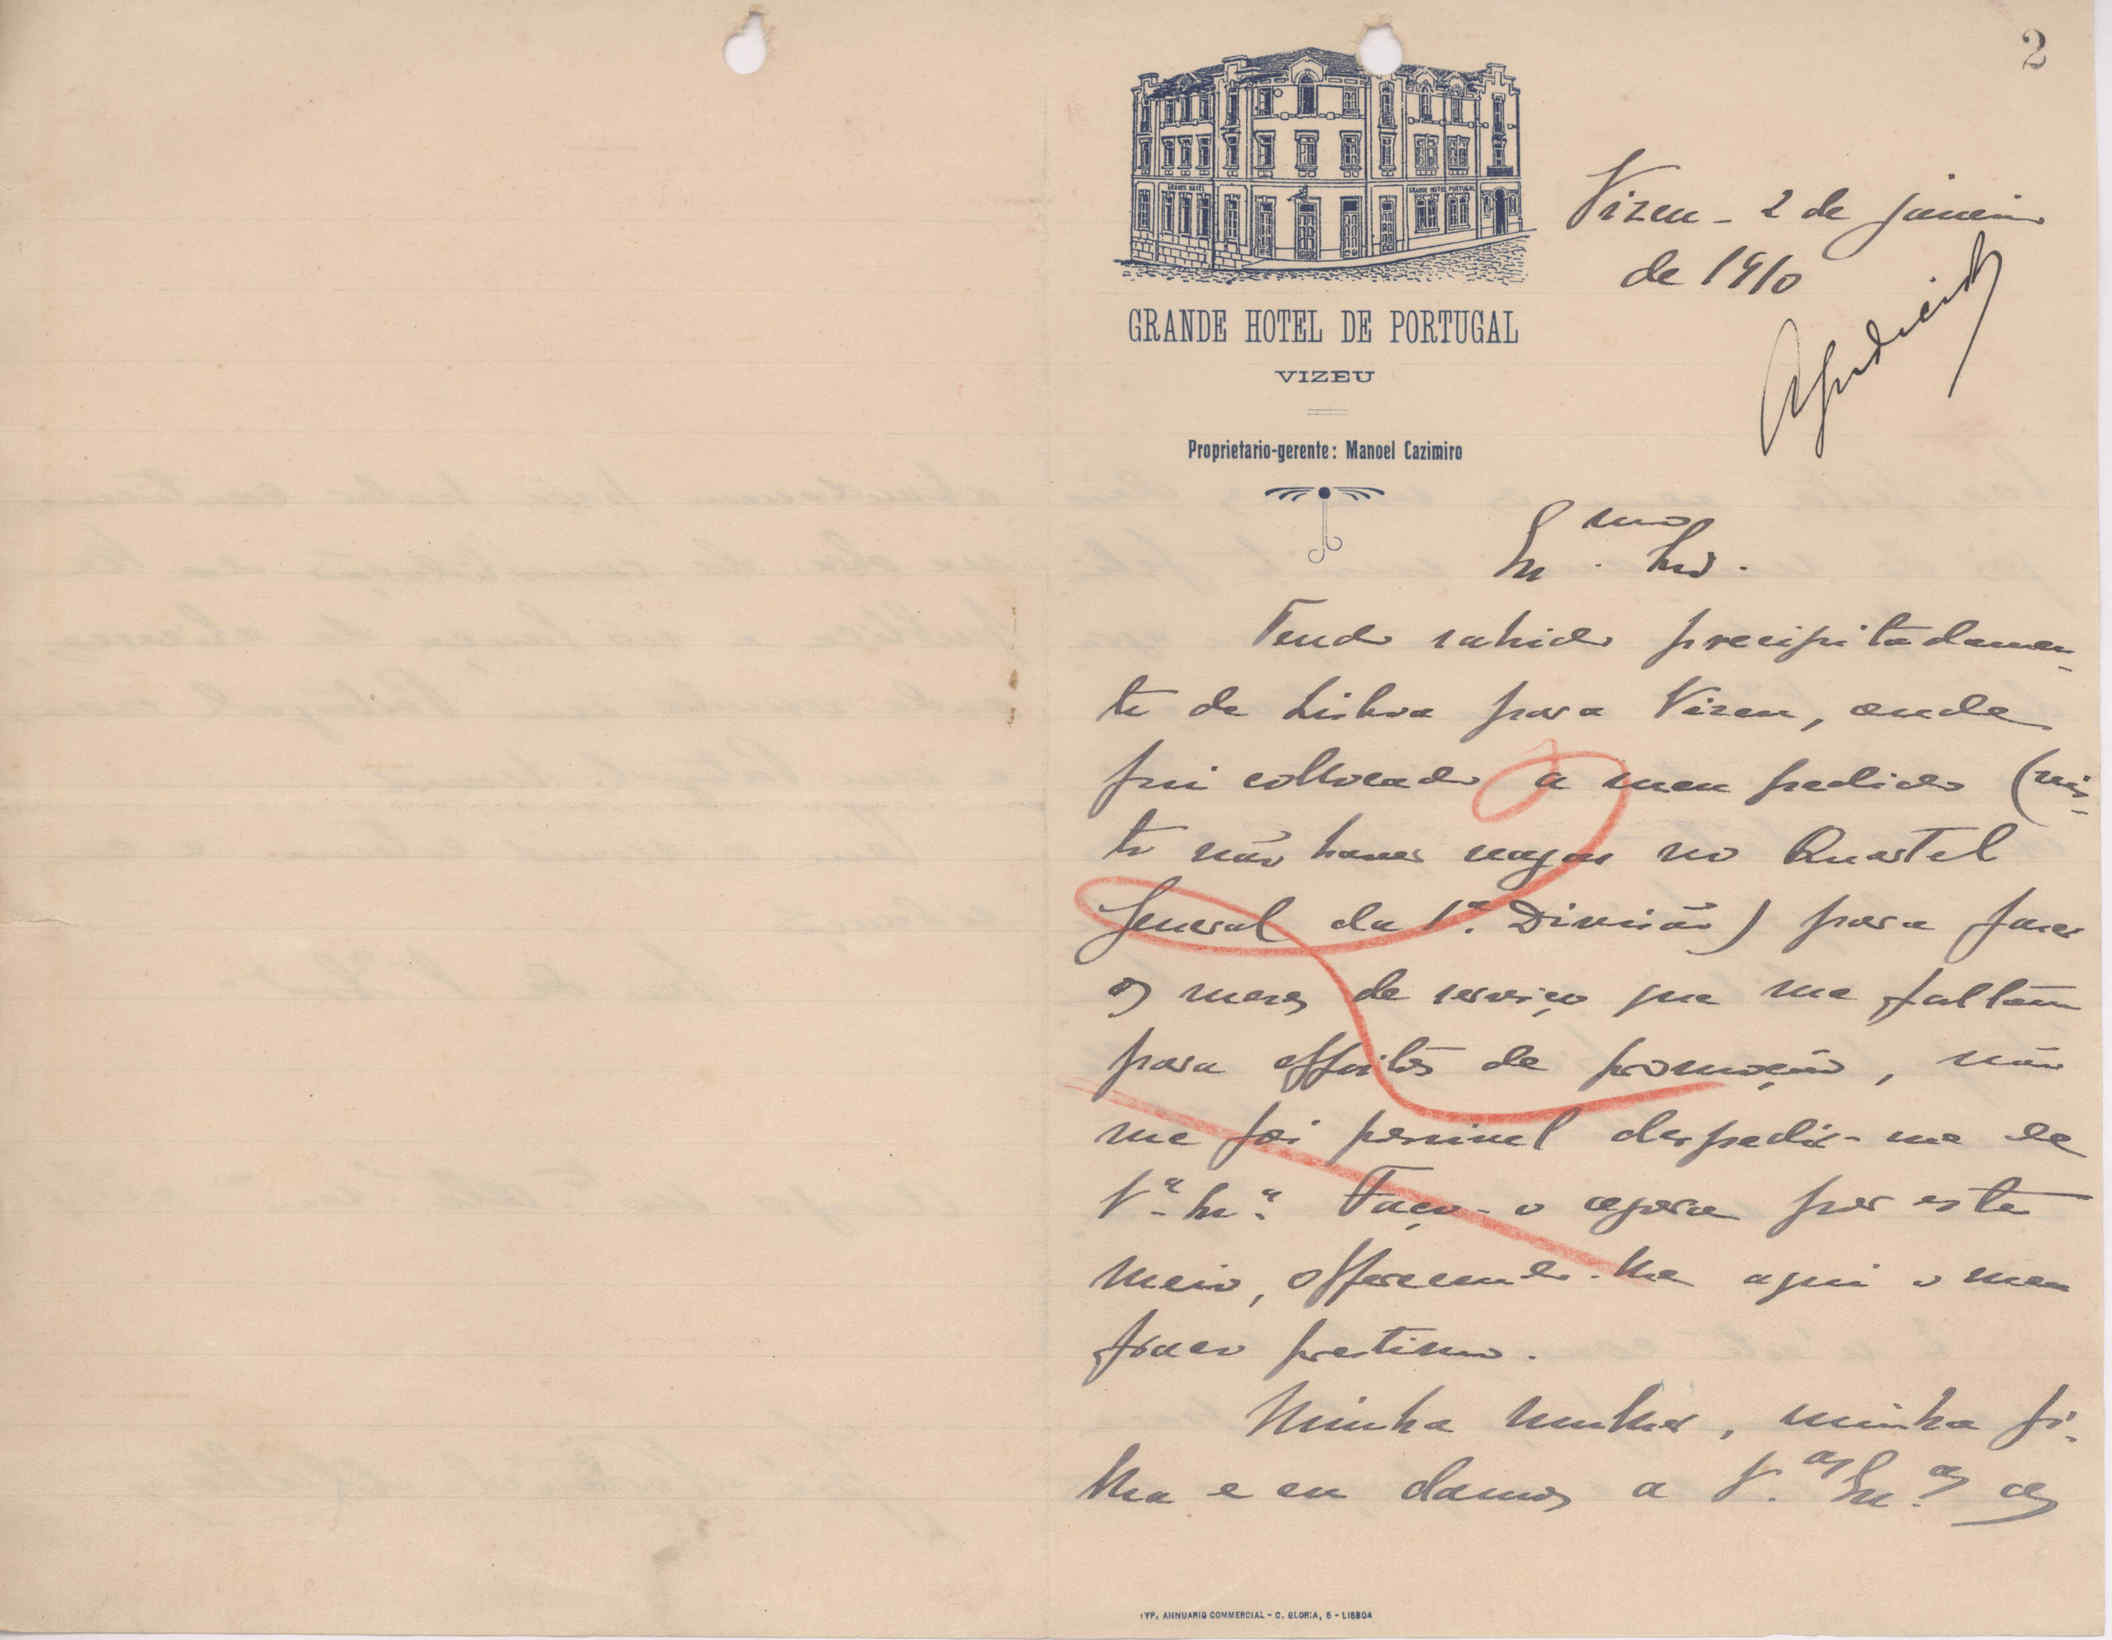 2
GRANDE HOTEL
GRANDE HOTEL PORTUGAL
Vizeu - 2 de janeiro
de 1910
Agradecida
GRANDE HOTEL DE PORTUGAL
VIZEU
Proprietario-gerente: Manoel Cazimiro
Exmo. Snr.
Tendo sahido precipitadamen-
te de Lisboa para Vizeu, onde
fui collocado a meu pedido (vis-
to não haver vagas no Quartel
General da 1ª. Divisão) para fazer
os meses de serviço que me faltam
para effeitos de promoção, não
me foi possivel despedir-me de
Vª. Exª. Faço-o agora por este
meio, offerecendo-lhe aqui o meu
fraco prestimo.
Minha mulher, minha fi-
lha e eu damos a V.as Ex.as as
TYP. ANNUARIO COMMERCIAL - C. GLORIA, 5 - LISBOA